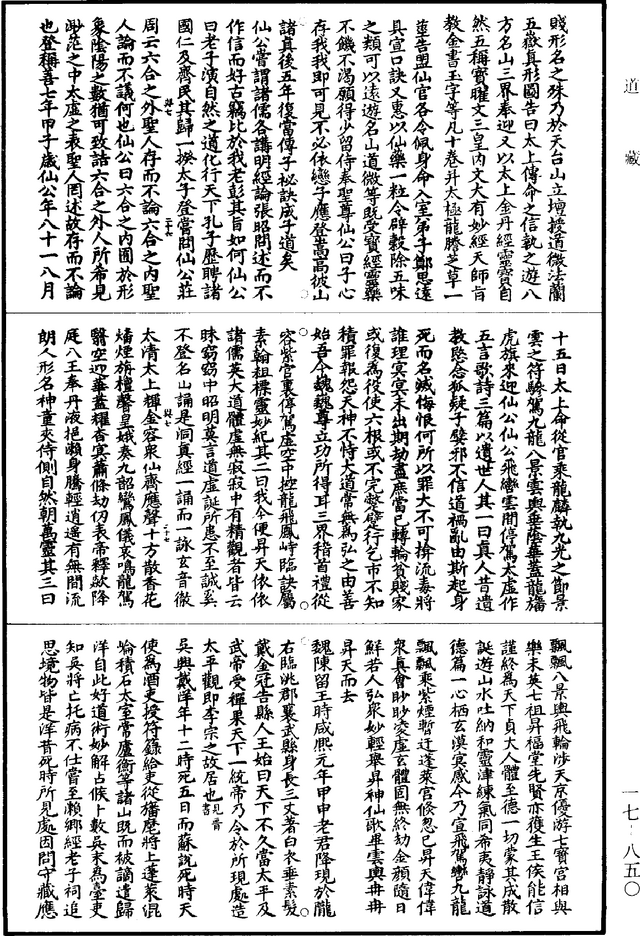 道藏
賤形名之殊乃於天台山立壇授道微法蘭
五嶽真形圖告曰太上傳命之信執之遊八
方名山三界奉迎又以太上金丹經靈寶自
然五稱寶曜文三皇内文大有妙經天師旨
教金書玉字等凡十卷并太極龍勝芝草一
莖告盟仙官各令佩身命入室弟子鄭思遠
具宣口訣又惠以仙藥一粒令辟穀除五味
之類可以遠遊名山道微等既受寶經靈藥
不饑不渴願得少留侍奉聖尊仙公曰子心
存我我即可見不必依戀子應登嵩高彼山
諸真後五年復當傳子祕訣成子道矣
仙公嘗謂諸儒各講明經論張昭問述而不
作信而好古竊比於我老彭其旨如何仙公
曰老子演自然之道化行天下孔子歷聘諸
國仁及齊民其歸一揆太子登嘗問仙公莊
周云六合之外聖人存而不論六合之内聖
人論而不議何也仙公曰六合之内囿於形
象陰陽之數猶可致詰六合之外人所希見
渺茫之中太虛之表聖人罔述故存而不論
也登稱善七年甲子歲仙公年八十一八月
十五日太上命從官乘龍麟執九光之節景
雲之符驂駕九龍八景雲輿垂蔭華蓋龍旛
虎旗來迎仙公仙公飛轡雲間停駕太虛作
五言歌詩三篇以遺世人其一曰真人昔遺
教愍念狐疑子嬖邪不信道禍亂由斯起身
死而名滅悔恨何所以罪大不可掩流毒將
誰理冥冥未出期劫盡庶當已轉輪貧賤家
或復為役使六根或不完蹩躄行乞市不知
積罪報怨天神不恃大道常無為弘之由善
始吾今魏魏尊立功所得耳三界稽首禮從
容紫宮裏停駕虛空中控龍飛鳳峙臨訣屬
素翰祖標靈妙紀其二曰我今便昇天依依
諸儒英大道體虛無寂寂中有精觀者皆云
昧窈窈中昭明莫言道虛誕所應不至誠奚
不登名山誦是洞真經一誦而一詠玄音徹
太清太上輝金容衆仙齊應聲十方散香花
燔煙旃檀馨皇娥奏九韶鸞鳳儀哀鳴龍駕
翳空迎華蓋耀杳冥蕭條劫仞表帝釋歘降
庭八王奉丹液挹漱身騰輕逍遥有無間流
朗入形名神童夾侍側自然朝萬靈其三曰
飄飄八景輿飛輪涉天京優游七寶宮相與
樂未英七祖昇福堂先賢亦獲生王侯能信
謹終為天下貞大人體至德一切蒙其成散
誕遊山水吐納和靈津練氣同希夷靜詠道
德篇一心栖玄漠冥感今乃宣飛駕轡九龍
飄飄乘紫煙暫迂蓬萊宮倐忽已昇天偉偉
衆真會眇眇㝱虛玄體固無終劫金顔隨日
鮮若人弘衆妙輕舉昇神仙歌畢雲輿冉冉
昇天而去
魏陳留王時咸熙元年甲申老君降現於隴
右臨洮郡襄武縣身長三丈著白衣垂素髮
戴金冠告縣人王始曰天下不久當太平及
武帝受禪果天下一統帝乃令於所現處造
太平觀即李宗之故居也見晉書
吳興戴洋年十二時死五日而蘇說死時天
使為酒吏授符籙給吏從旛麾將上蓬萊崑
崙積石太室常廬衡等諸山既而被謫遣歸
洋自此好道術妙解占候卜數吳末為臺吏
知吳將亡托病不仕嘗至瀨鄉經老子祠追
思境物皆是洋昔死時所見處因問守藏應
一七·八五〇